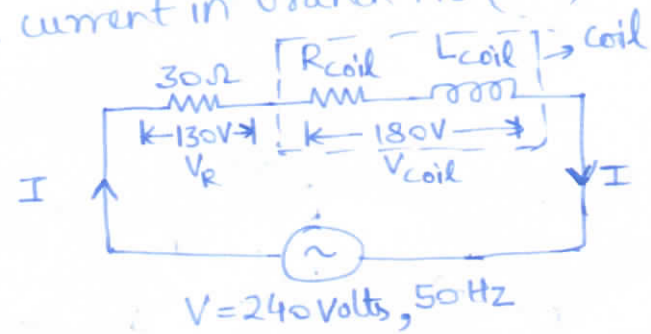 current in
Rcoil Lcoil → coil
30Ω
130V 180V
VR Vcoil
I I
~
V = 240 Volts, 50 Hz